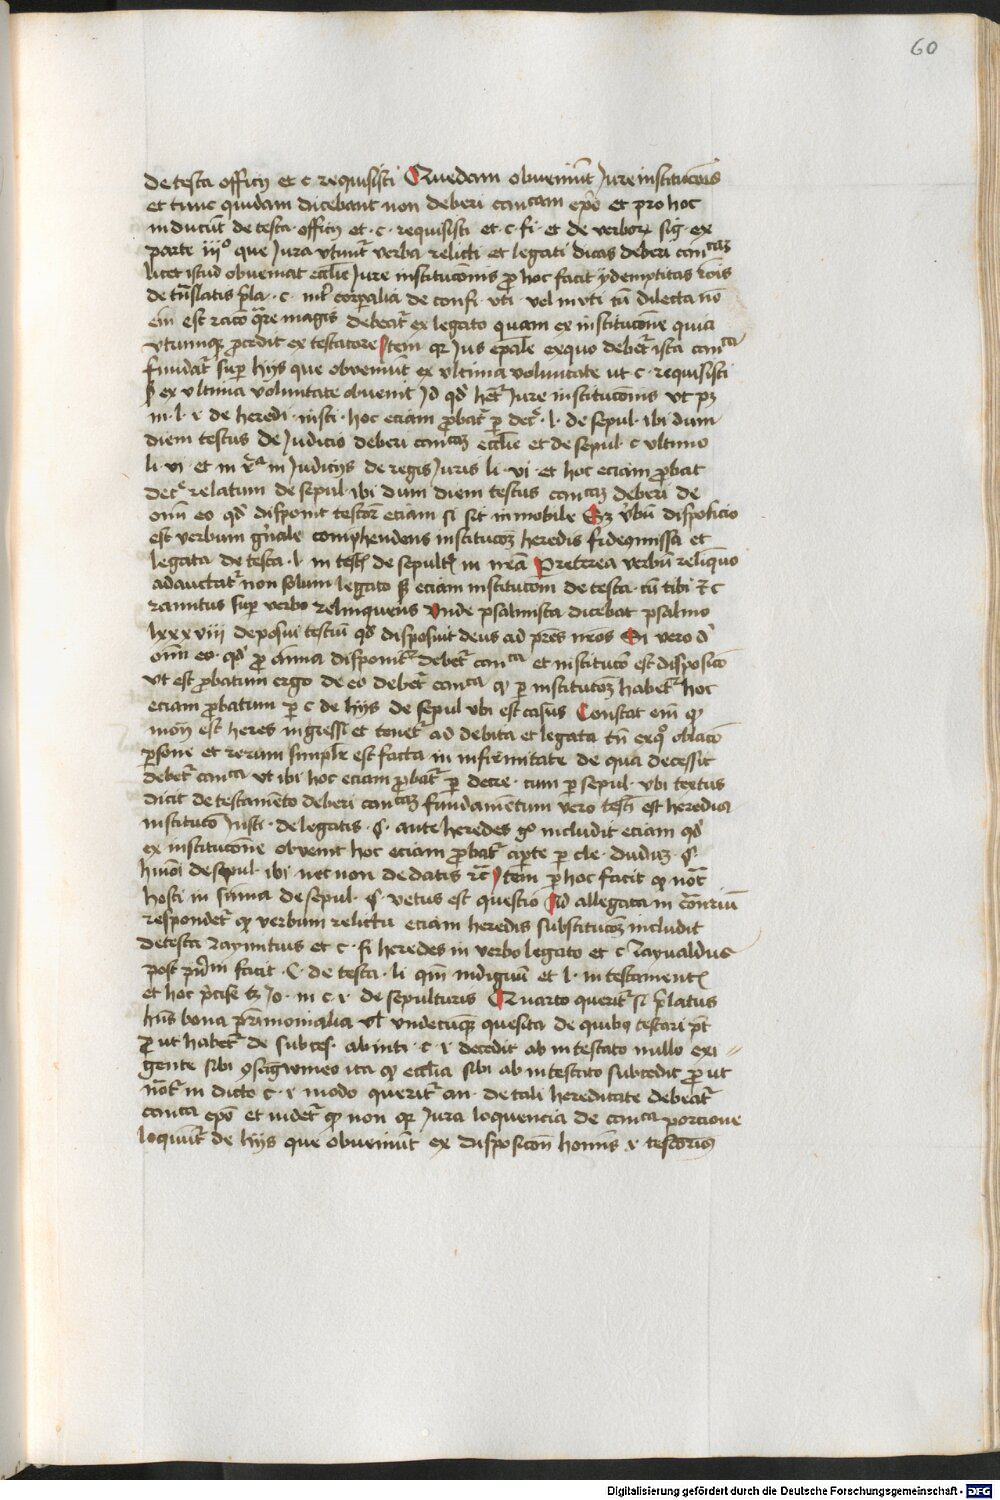 60
de testa officij et c requisisti Quedam obveniūt Jure institucōis
et tunc quidam dicebant non deberi canicam ep̄o et pro hoc
inducūt de testa · officij et · c · requisisti et · c · fi · et de verborꝝ sig · ex
parte iijº que Jura vtūt verba relicti et legati dicas deberi canicaꝫ
licet istud obveniat eccl̄ie Jure institucōnis ꝓ hoc facit ydemptitas rōis
de trāslatis p̄la · c · int̄ corꝑalia de confi · vti · vel invti cū dilecta nō
em̄ est racō quare magis debeat̄ ex legato quam ex institucōne quia
vtrumqꝫ ꝓcedit ex testatore Item qꝛ Jus epāle exquo debet̄ ista canica
fundat̄ suꝑ hijs que obveniūt ex vltima voluntate ut c · requisisti
sꝫ ex vltima voluntate obvenit Jd qd̄ het̄ Jure institucōnis vt pꝫ
in · l · r de heredi · insti · hoc eciam ꝓbat̄ ꝑ dec̄ · l · de sepul · ibi dum
diem testus de Judicio deberi canicaꝫ eccl̄ie et de sepul · c vltimo
li · vi · et in in Judicijs de regis Juris li · vi · et hoc eciam ꝓbat
dec̄ relatum de sepul · ibi dum diem testus canicaꝫ deberi de
om̄i eo qd̄ disponit testor̄ eciam si sit inmobile Sꝫ v̄bū disposicio
est verbum gn̄ale comp̄hendens institucoꝫ heredis fideqmissā et
legata de testa · l · in test̄ de sepult̄ in nr̄a Preterea verbū reliquo
adauctat̄ non solum legato sꝫ eciam institucōm de testa · cū tibi et c
ranutus suꝑ verbo relinquens vnde psalmista dicebat psalmo
lxxxviij deposui testiū qd̄ disposuit deus ad pr̄es nr̄os Si vero d̄
om̄i eo · qd̄ ꝓ aīma disponit̄ debet̄ canica et institucō est disposicō
vt est ꝓbatum ergo de eo debet̄ canica qꝫ ꝑ institucoꝫ habet̄ hoc
eciam ꝓbatum ꝑ c de hijs de sepul vbi est casus Constat em̄ qꝫ
mon̄ est heres ingressi et tenet̄ ad debita et legata tn̄ exqº oblacō
ꝑsone et rerum simpl̄r est facta in infirmitate de qua decessit
debet̄ canica vt ibi hoc eciam ꝓbat̄ ꝑ decre · cum ꝑ sepul · vbi textus
dicit de testamēto deberi canicaꝫ fundamentum vero testi est heredis
institucō Insti · de legatis · §· ante heredes gº includit eciam qd̄
ex institucōne obvenit hoc eciam ꝓbat̄ aꝑte ꝑ cle · dudūꝫ · §·
hmōi de sepul · ibi nec non de datis etc Item ꝑ hoc facit qꝫ not̄
hosti in sūma de sepul · §· vetus est questio Ad allegata in cōn̄riū
respondet̄ qꝫ verbum relicta eciam heredis substitucoꝫ includit
de testa raynutius et c · si heredes in verbo legato et c raynaldus
post pn̄ m facit · C · de testa · li · qm̄ indignū et l · in testament̄
et hoc p̄cise tꝫ Jo · in c · r · de sepulturis Quarto querit̄ si p̄latus
hn̄s bona pr̄imonialia vl̄ vndecūqꝫ quesita de quibꝰ testari pt̄
ꝓut habet̄ de succes · ab inti · c · r decedit ab intestato nullo exi
gente sibi ꝯsag̅wineo ita qꝫ eccl̄ia sibi ab intestato succedit ꝓut
not̄ in dicto c · r modo querit̄ an · de tali hereditate debeat̄
canica ep̄o et videt̄ qꝫ non qꝛ Jura loquencia de canica porcione
loquūt̄ de hijs que obveniūt ex disposicōn hominis r testatoris
Digitalisierung gefördert durch die Deutsche Forschungsgemeinschaft - DFG